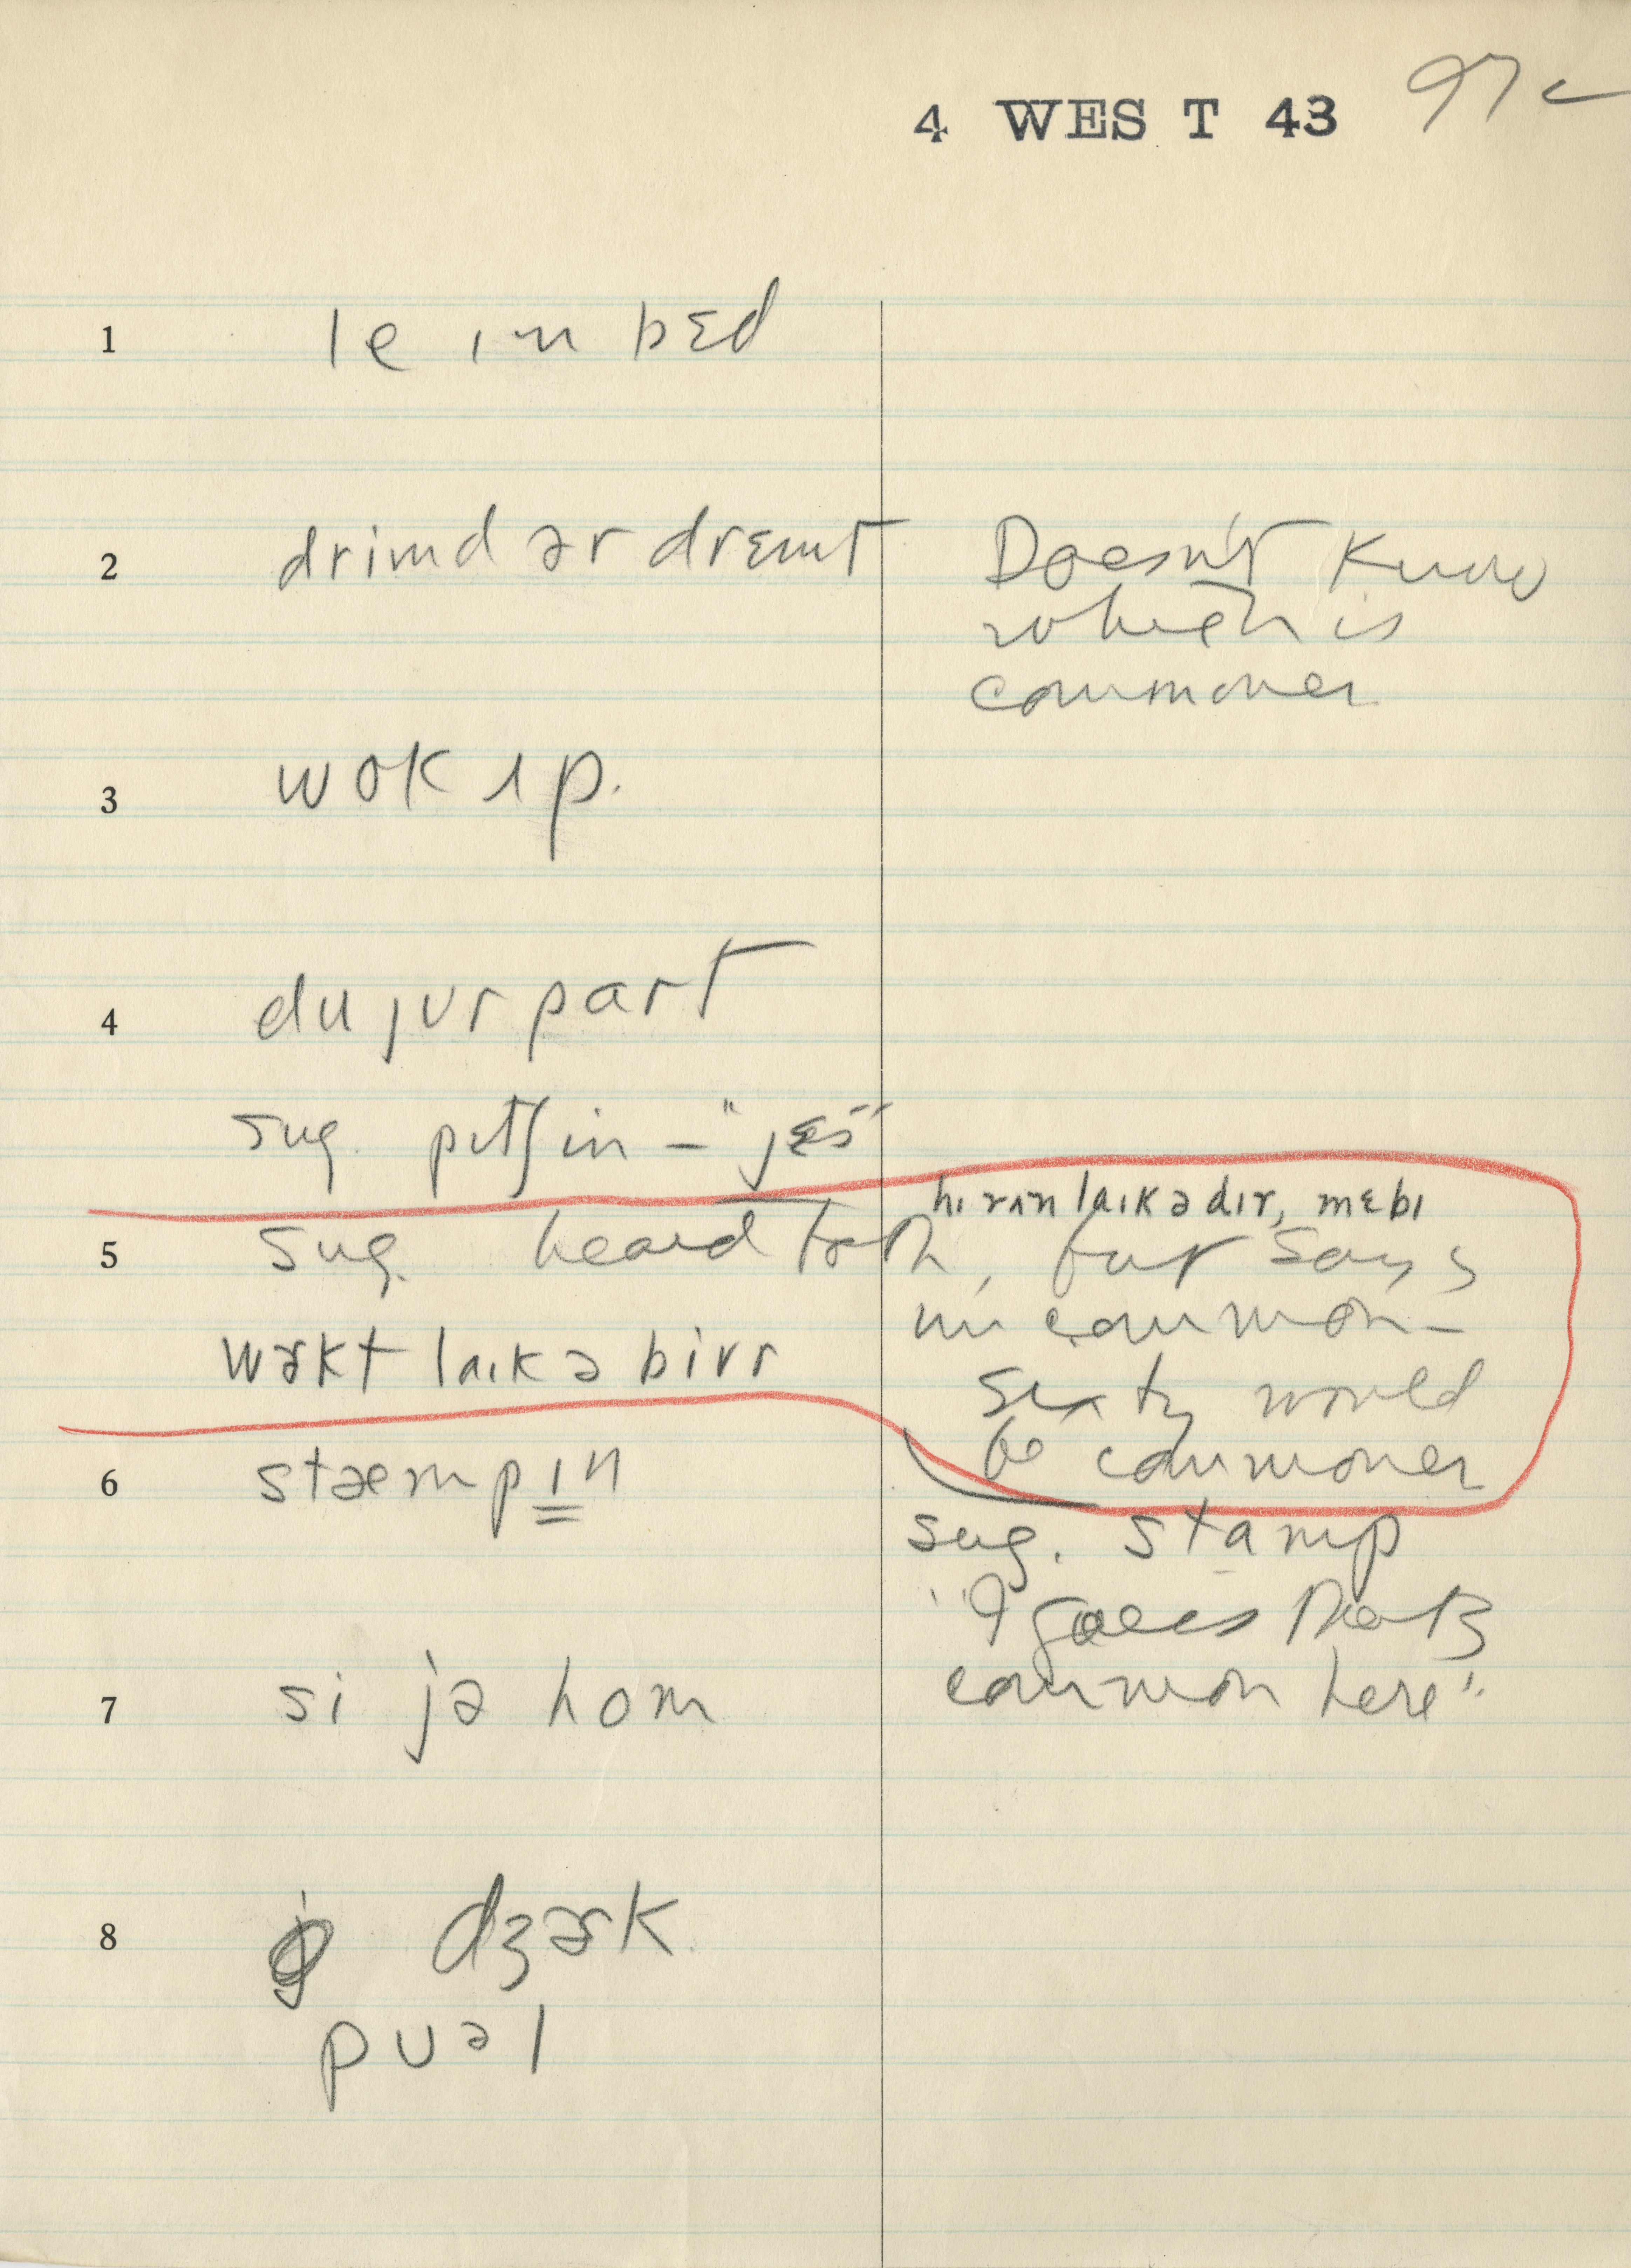 4 WEST 43 97c
1 le ɪn bɛd
2 drimd ər drɛmt Doesn't know
which is
commoner
3 wok ʌp.
4 du jʊr part
sug. pɪtʃ in – "jɛs"
hi rʌn laɪk ə dɪr, mebɪ
5 sug. heard both, but says
un common –
wɝkt laɪk ə bivr
sixty would
be commoner
6 stæmpɪn
sug. stamp
"I guess that's
7 si jə hom
common here".
8 dʒɝk
pʊəl